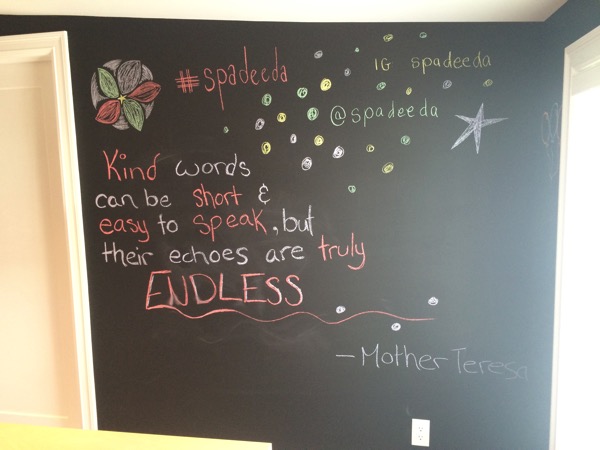 #spadeeda
IG spadeeda
@spadeeda
Kind words
can be short &
easy to speak, but
their echoes are truly
ENDLESS
- Mother Teresa